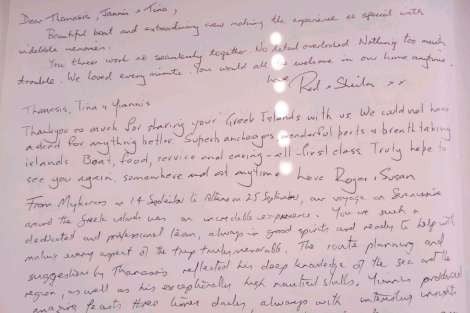 Dear Thanasis, Yannis & Tina,
Beautiful boat and extraordinary crew making the experience so special with
indelible memories.
You three work so seamlessly together. No detail overlooked. Nothing too much
trouble. We loved every minute. You would all be welcome in our home anytime.
love Rod & Sheila xx
Thanasis, Tina & Yiannis
Thankyou so much for sharing your Greek Islands with us. We could not have
asked for anything better. Superb anchorages, wonderful ports & breathtaking
islands. Boat, food, service and caring - all first class. Truly hope to
see you again, somewhere and at anytime. Love Roger & Susan
From Mykonos on 14 September to Athens on 25 September, our voyage on
around the Greek islands was an incredible experience. You are such a
dedicated and professional team, always in good spirits and ready to help with
making every aspect of the trip truly memorable. The route planning and
suggestions by Thanasis reflected his deep knowledge of the sea and the
region, as well as his exceptionally high nautical skills. Yiannis produced
amazing feasts three times daily, always with interesting insights